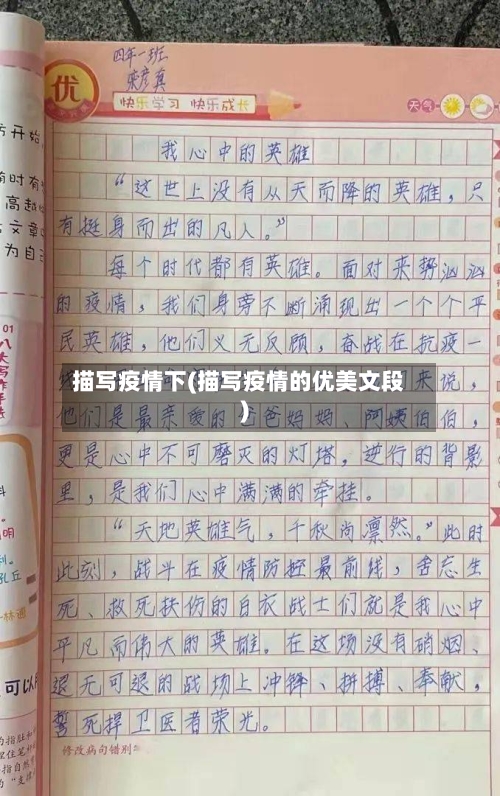 四年一班
优
快乐学习 快乐成长
天气
我心中的英雄
“这世上没有从天而降的英雄，只
有挺身而出的凡人。”
每个时代都有英雄。面对来势汹汹
的疫情，我们身旁不断涌现出一个个平
民英雄，他们义无反顾，奋战在抗疫一
来说，
描写疫情下(描写疫情的优美文段
)
他们是最亲爱的爸爸妈妈、阿姨伯伯，
更是心中不可磨灭的灯塔。逆行的背影
里，是我们心中满满的牵挂。
“天地英雄气，千秋尚凛然。”此时
此刻，战斗在疫情防控最前线，舍忘生
死、救死扶伤的白衣战士们就是我心中
平凡而伟大的英雄。在这场没有硝烟、
退无可退的战场上冲锋、拼搏、奉献，
誓死捍卫医者荣光。
修改病句错别
方开始
时有
高越
文章
为自
01
八大写作手法
料
明
孔丘
林语
可以